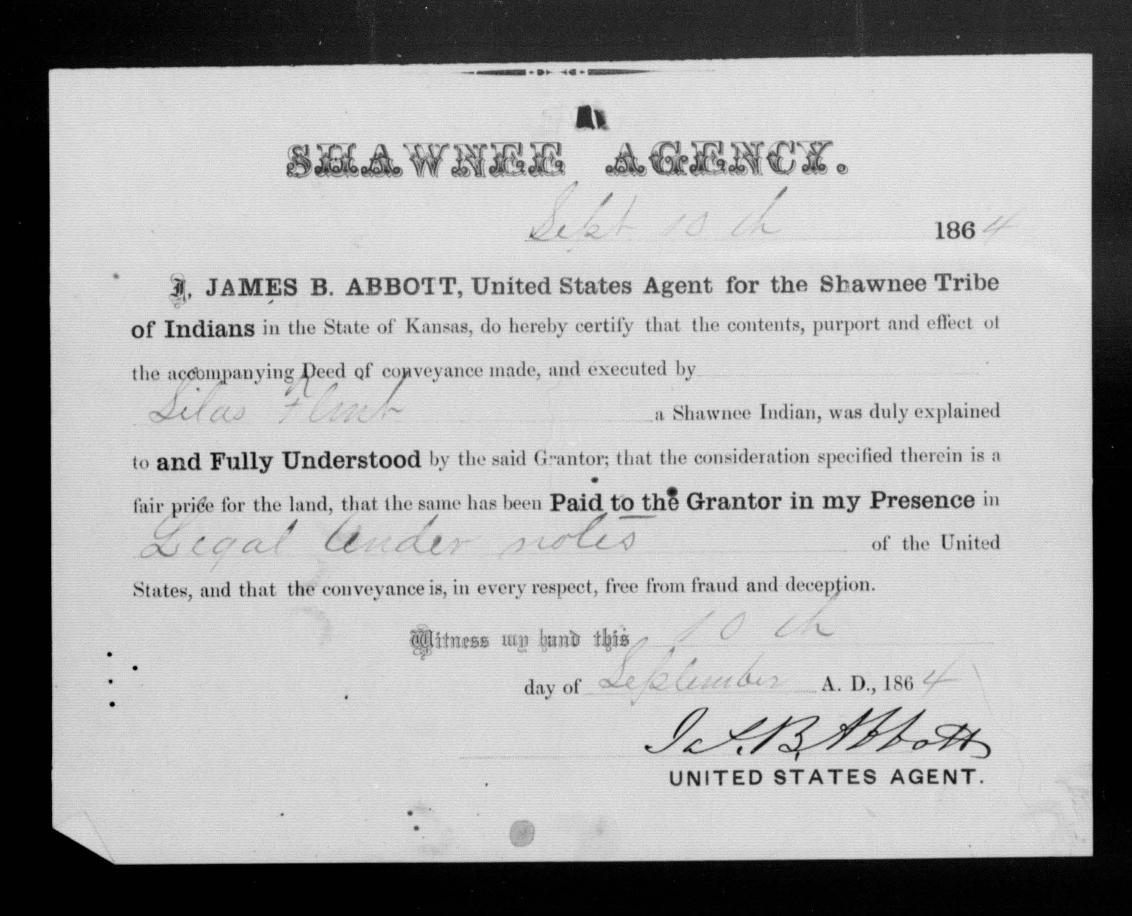 SHAWNEE AGENCY.
Sept 10th 1864
I, JAMES B. ABBOTT, United States Agent for the Shawnee Tribe
of Indians in the State of Kansas, do hereby certify that the contents, purport and effect of
the accompanying Deed of conveyance made, and executed by
Silas Flint a Shawnee Indian, was duly explained
to and Fully Understood by the said Grantor; that the consideration specified therein is a
fair price for the land, that the same has been Paid to the Grantor in my Presence in
Legal Tender notes of the United
States, and that the conveyance is, in every respect, free from fraud and deception.
Witness my hand this 10th
day of September A. D., 1864
Jas. B. Abbott
UNITED STATES AGENT.